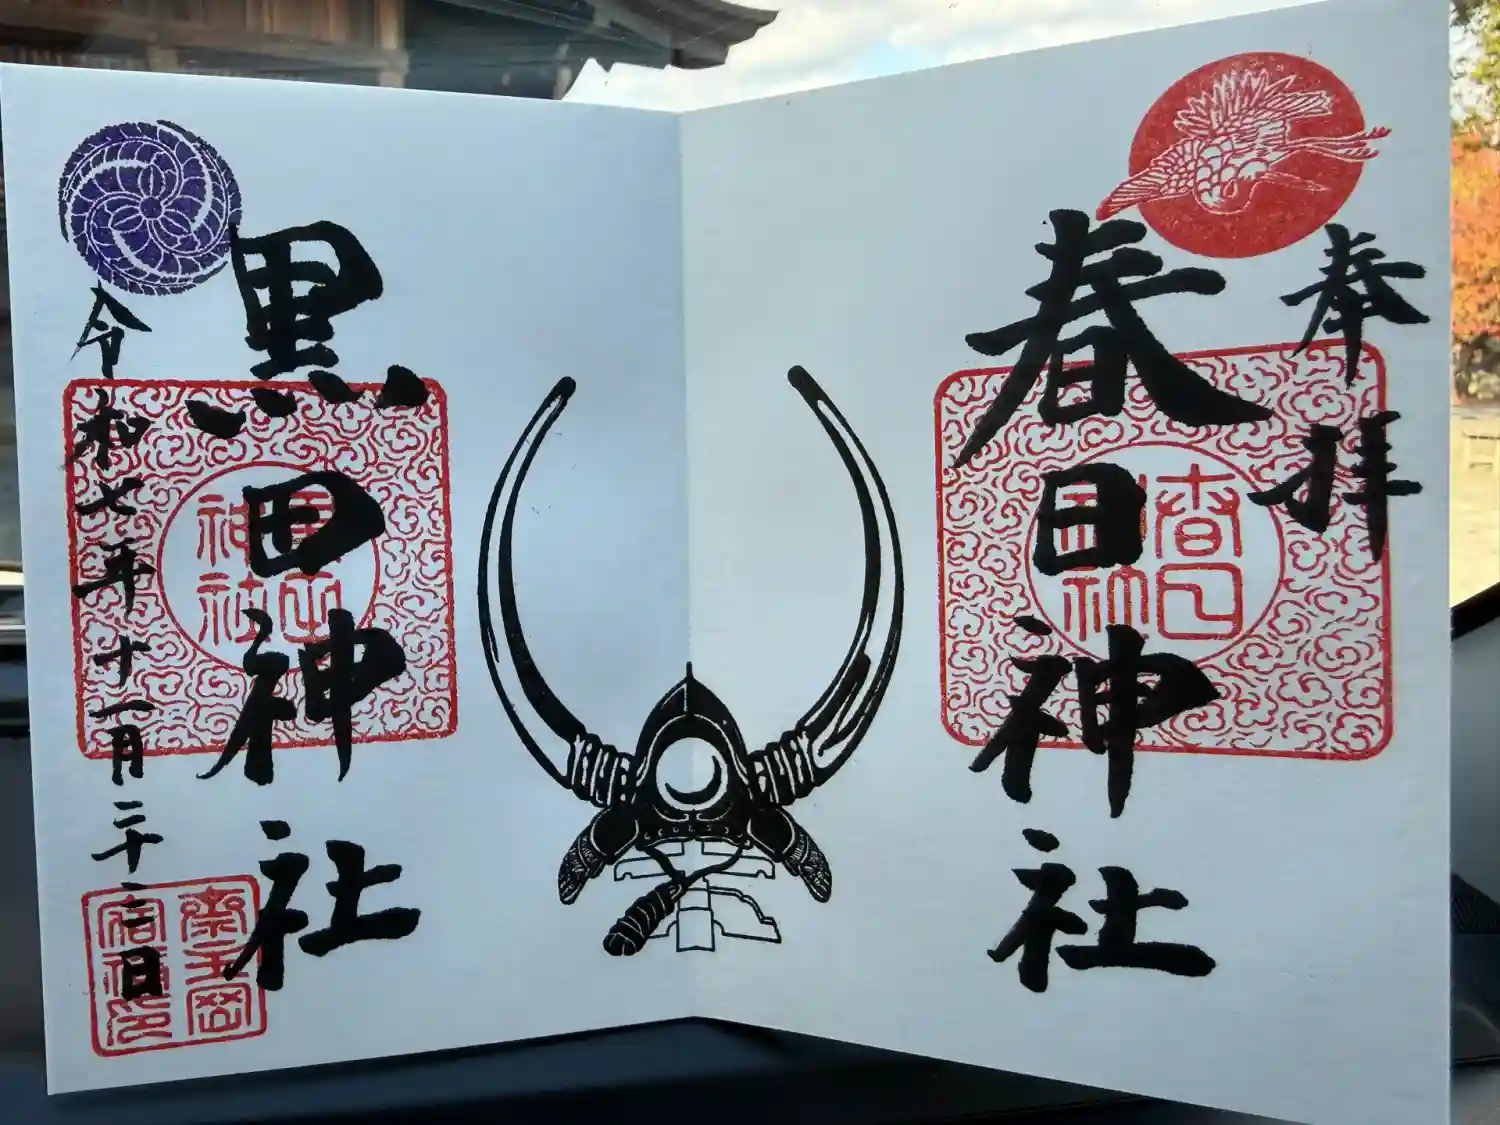 奉拝
春日神社
春日神社
黒田神社
黒田神社
令和七年十一月二十二日